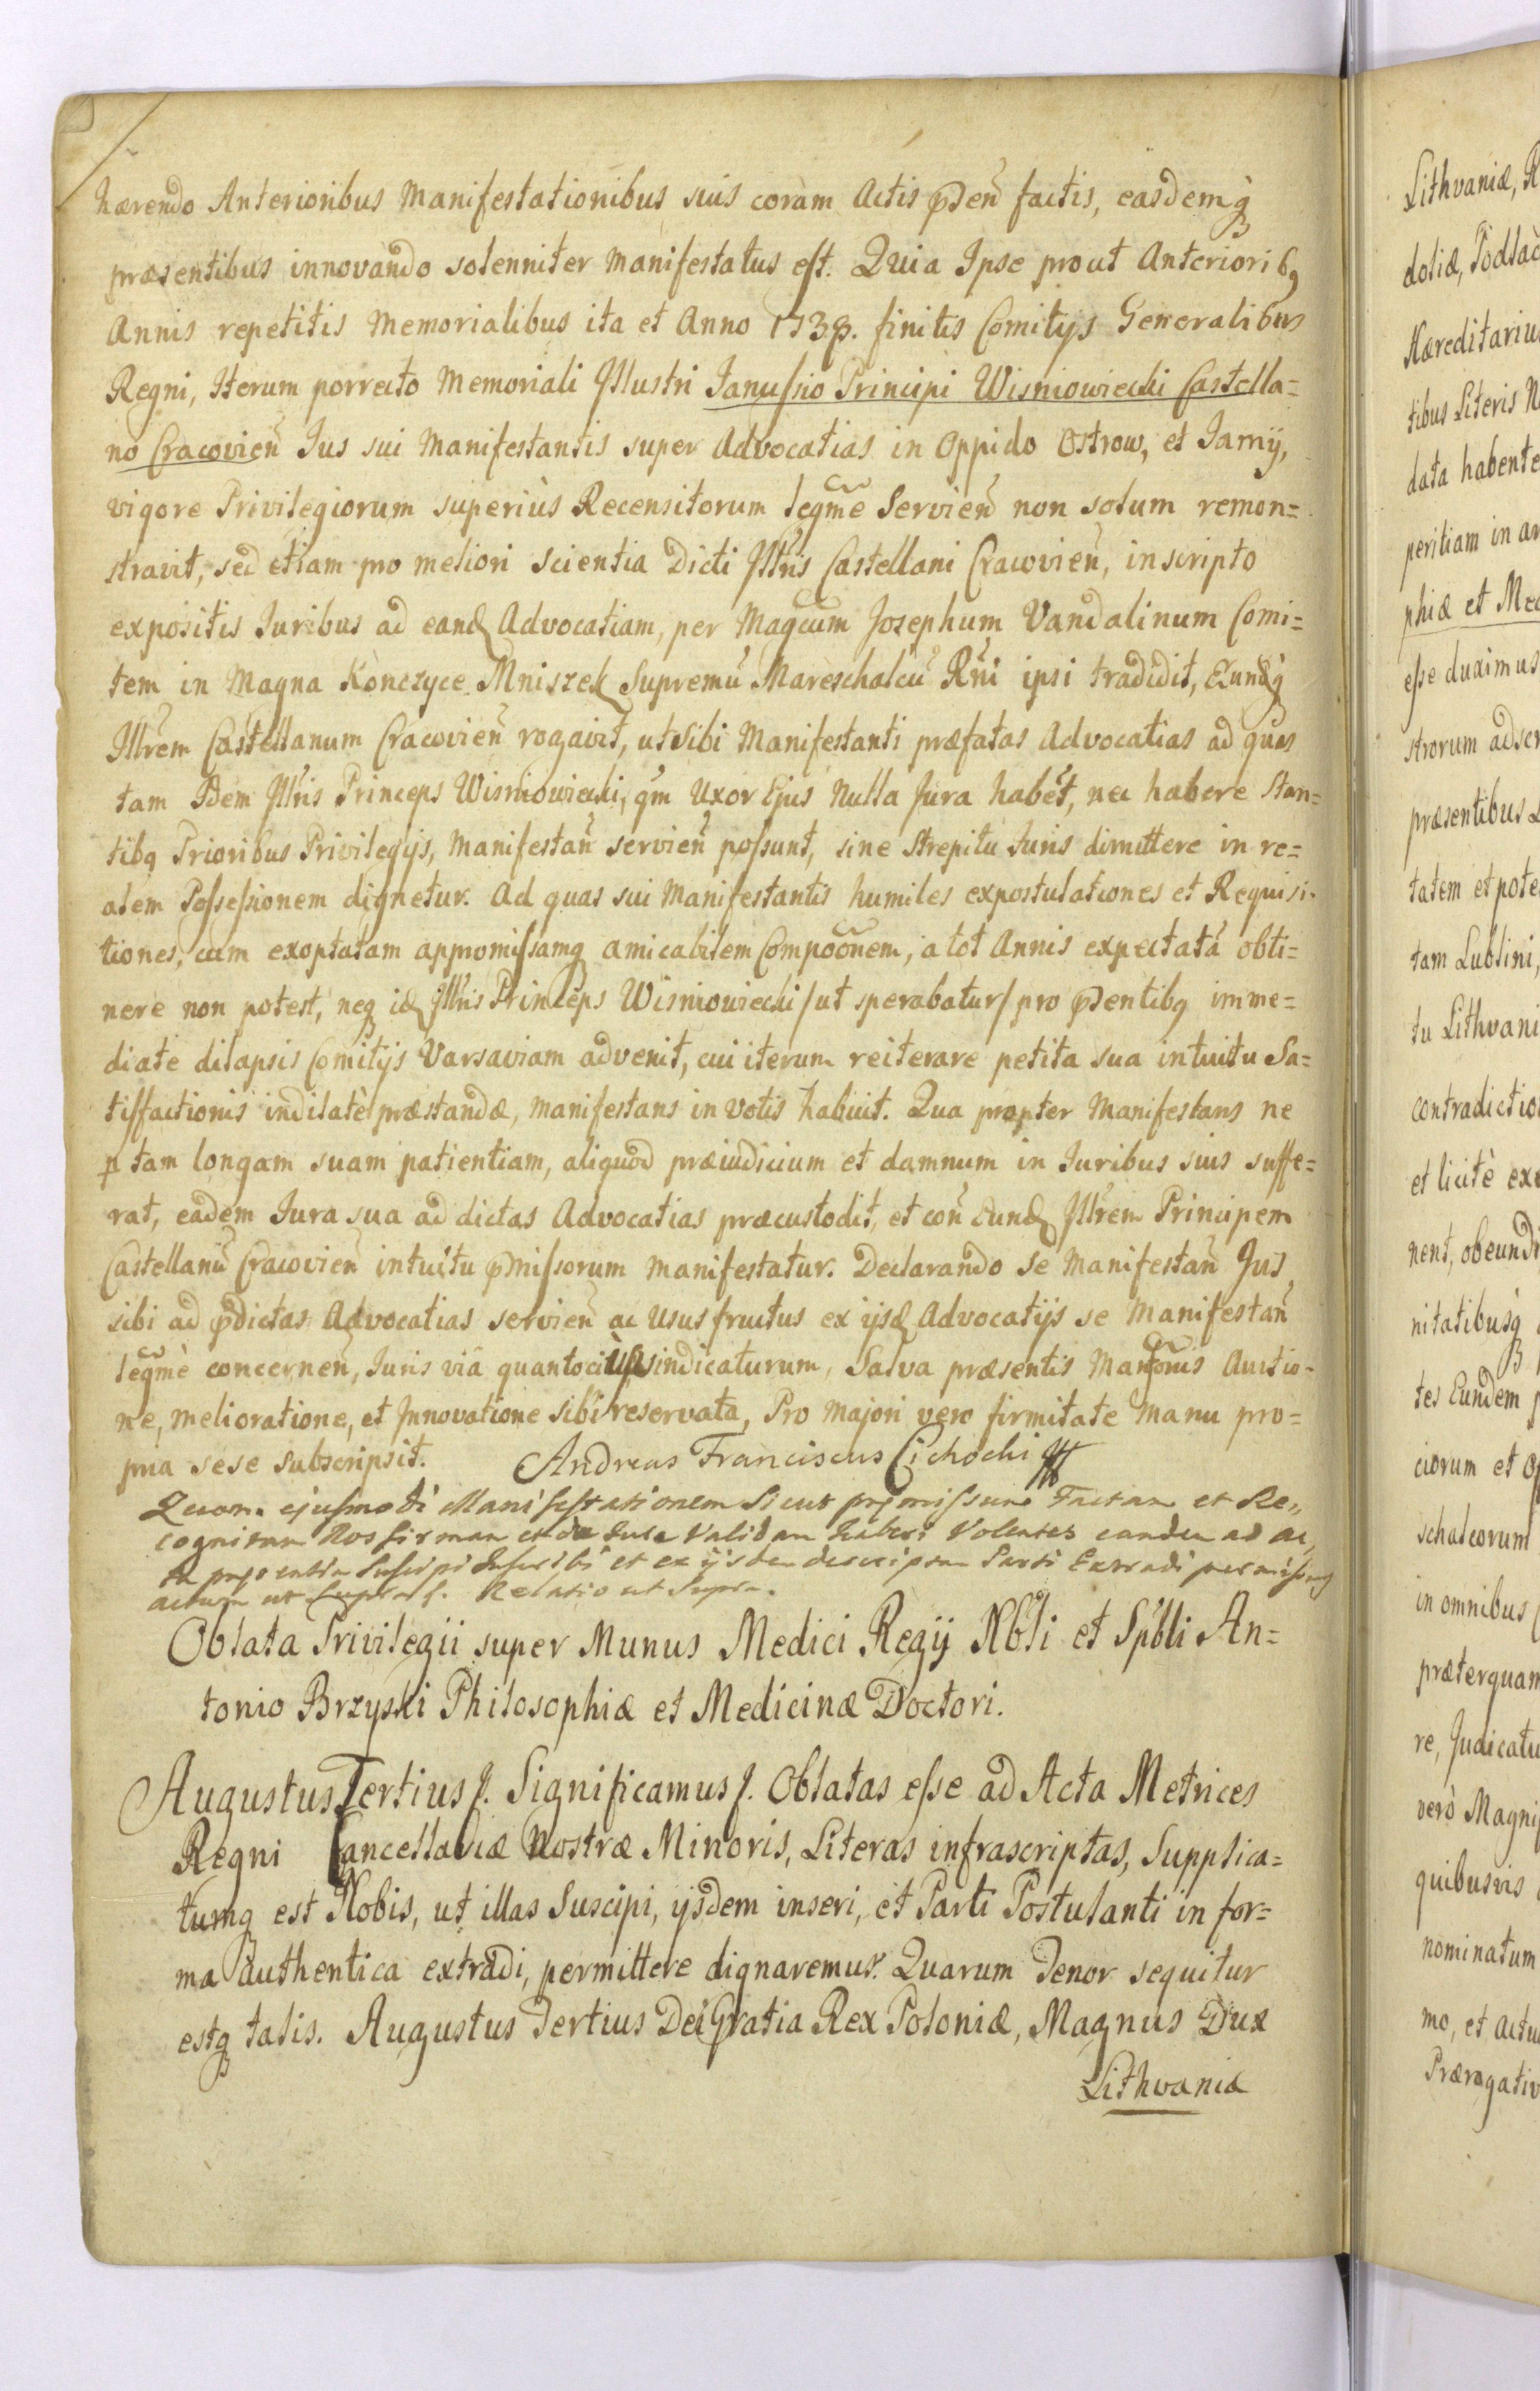 hærendo Anterioribus Manifestationibus suis coram Actis pden̄ factis, easdemq
præsentibus innovando solenniter Manifestatus est. Quia Ipse prout Anteriorib9
Annis repetitis Memorialibus ita et Anno 1738. finitis Comitÿs Generalibus
Regni, Iterum porrecto Memoriali Illustri Janussio Principi Wisniowiecki Castella=
no Cracovien̄ Ius sui Manifestantis super Advocatias in Oppido Ostrow, et Jamÿ,
vigore Privilegiorum superiùs Recensitorum legme Servien̄ non solum remon=
stravit, sed etiam pro meliori scientia Dicti Illris Castellani Cracovien̄, in scripto
expositis Iuribus ad eand Advocatiam, per Magcum Josephum Vandalinum Comi=
tem in Magna Konczyce Mniszek Supremū Mareschalcū Rni ipsi tradidit, Eundq
Illrem Castellanum Cracovien̄ rogavit, ut Sibi Manifestanti præfatas Advocatias ad quas
tam Idem Illris Princeps Wisniowiecki, qm Uxor Ejus Nulla Jura habet, nec habere Stan=
tibq Prioribus Privilegÿs, Manifestan̄ servien̄ possunt, sine Strepitu Iuris dimittere in re=
alem Possessionem dignetur. Ad quas sui Manifestantis humiles expostulationes et Requisi-
tiones, cum exoptatam appromissamq amicabilem Compoōnem, a tot Annis expectatā obti=
nere non potest, neq id Illris Princeps Wisniowiecki /ut sperabatur/ pro pdentibq imme=
diate dilapsis Comitÿs Varsaviam advenit, cui iterum reiterare petita sua intuitu Sa=
tisfactionis indilatè præstandæ, Manifestans in votis habuit. Qua propter Manifestans ne
p tam longam suam patientiam, aliquod præiudicium et damnum in Iuribus suis suffe=
rat, eadem Iura sua ad dictas Advocatias præcustodit, et con̄ Eund Illrem Principem
Castellanū Cracovien̄ intuitu pmissorum manifestatur. Declarando se Manifestan̄ Jus
sibi ad pdictas Advocatias servien̄ ac Usus fructus ex ÿsd Advocatÿs se Manifestan̄
legmè concernen̄, Iuris viâ quantocius vindicaturum, Salva præsentis Manfonis Auctio-
ne, melioratione, et Innovatione Sibi reservata, Pro Majori vero firmitate Manu pro=
pria sese subscripsit. Andreas Franciscus Cichocki
Quam ejusmodi Manifestationem Sicut præmissum Factam et Re,,
cognitam Nos firmam et de Iure Validam haberi Volentes eandem ad ac,
ta præsentia Suscipi Inscribi et ex ijsdem descriptam Parti Extradi permisimus
actum ut Supra. Relatio ut Supra.
Oblata Privilegii super Munus Medici Regÿ Nbli et Spbli An=
tonio Brzyski Philosophiæ et Medicinæ Doctori.
Augustus Tertius f. Significamus f. Oblatas esse ad Acta Metrices
Regni Cancellariæ Nostræ Minoris, Literas infrascriptas, Supplica=
tumq est Nobis, ut illas Suscipi, ÿsdem inseri, et Parti Postulanti in for=
ma authentica extradi, permittere dignaremur. Quarum Tenor sequitur
estq talis. Augustus Tertius Dei Gratia Rex Poloniæ, Magnus Dux
Lithvaniæ
Lithvaniæ,
doliæ,
Hæreditariu
tibus Literis
data habente
peritiam in
phiæ et Med
esse duximus
strorum
præsentibus
tatem et pote
tam Lublini,
tu Lithvani
contradictio
et licitè exe
nent, obeundi
nitatibusq
tes Eundem
ciorum et
schalcorum
in omnibus
præterquam
re, Judicatu
verò Magni
quibusvis
nominatum
mo, et actu
Prærogativ